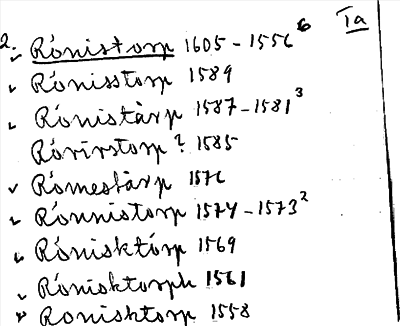 Ia
2. Rónistorp 1605-1556⁶
Rónisstorp 1589
Rónistàrp 1587-1581³
Rórirstorp? 1585
Rómestàrp 1576
Rónnistorp 1574-1573²
Rónisktórp 1569
Rónisktorph 1561
Ronisktorp 1558